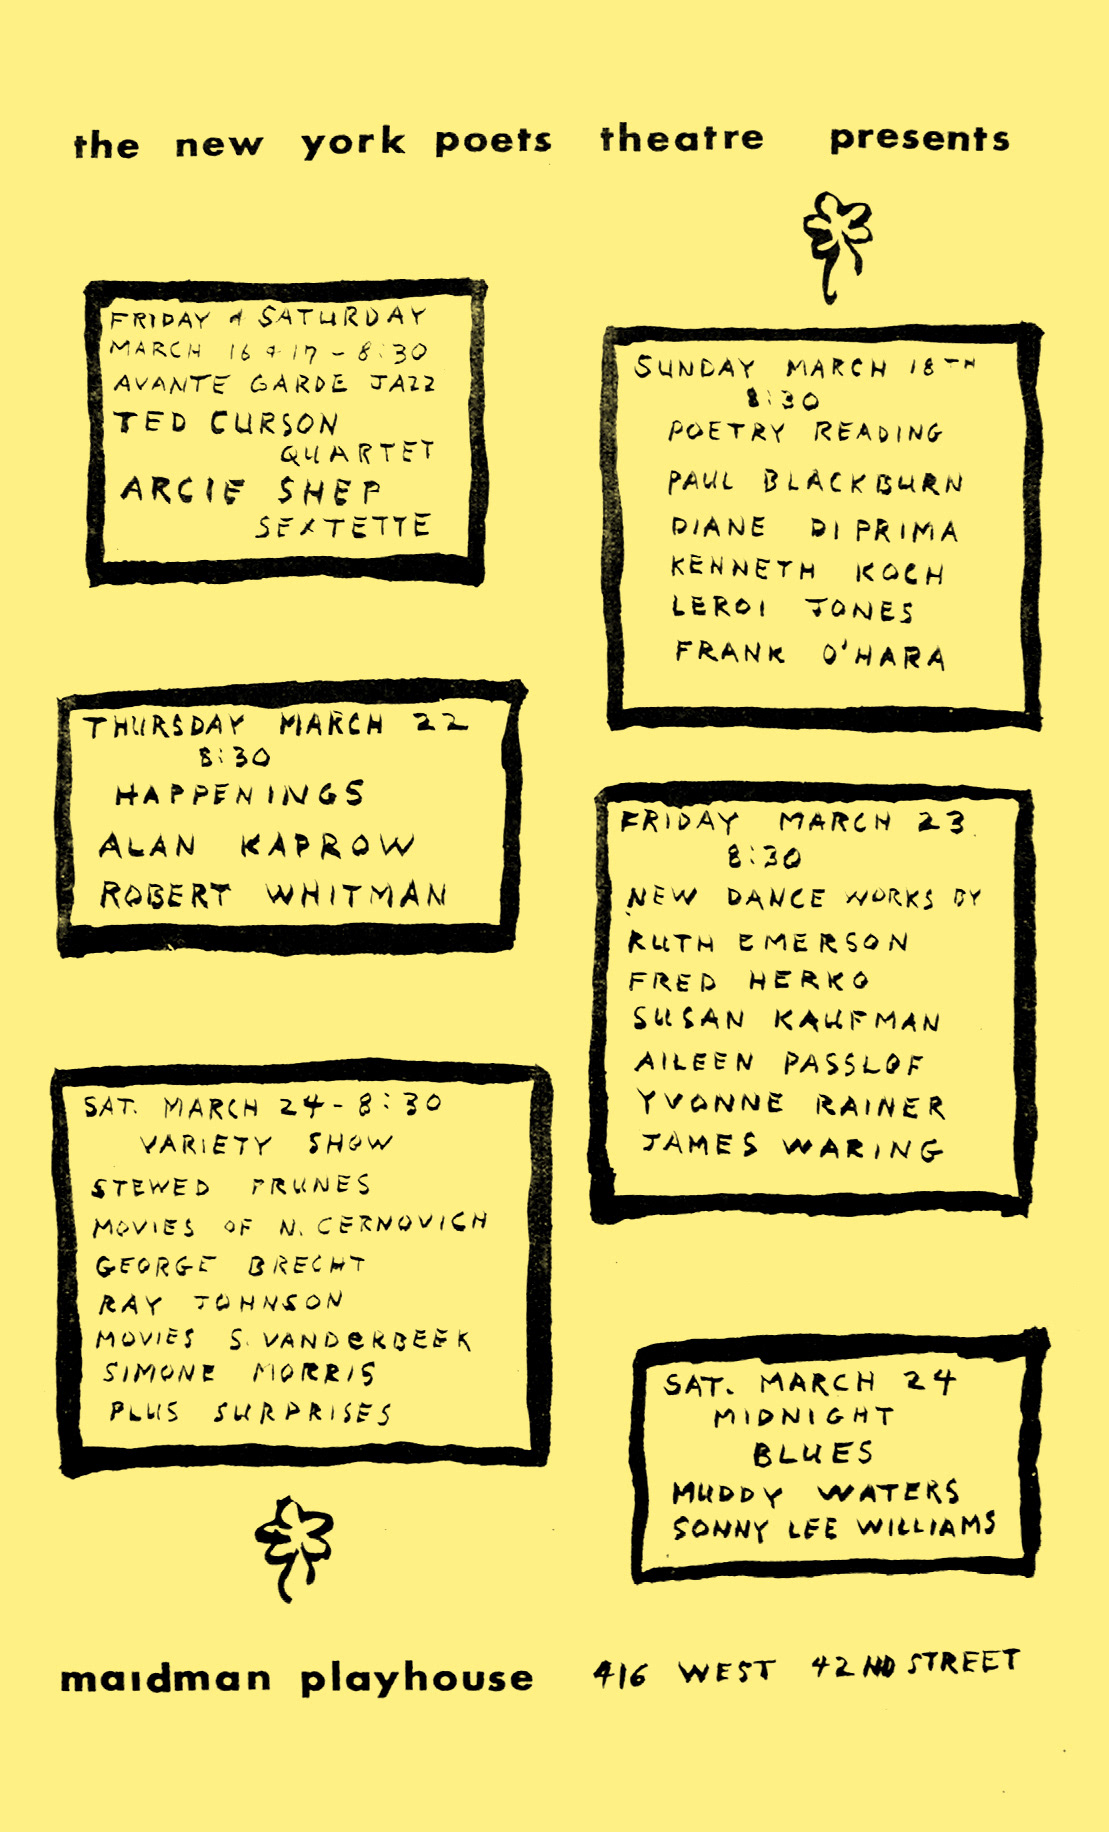 the new york poets theatre presents
FRIDAY & SATURDAY
MARCH 16 & 17 - 8:30
AVANTE GARDE JAZZ
TED CURSON
QUARTET
ARCIE SHEP
SEXTETTE
SUNDAY MARCH 18TH
8:30
POETRY READING
PAUL BLACKBURN
DIANE DI PRIMA
KENNETH KOCH
LEROI JONES
FRANK O'HARA
THURSDAY MARCH 22
8:30
HAPPENINGS
ALAN KAPROW
ROBERT WHITMAN
FRIDAY MARCH 23
8:30
NEW DANCE WORKS BY
RUTH EMERSON
FRED HERKO
SUSAN KAUFMAN
AILEEN PASSLOF
YVONNE RAINER
JAMES WARING
SAT. MARCH 24 - 8:30
VARIETY SHOW
STEWED PRUNES
MOVIES OF N. CERNOVICH
GEORGE BRECHT
RAY JOHNSON
MOVIES S. VANDeRBEEK
SIMONE MORRIS
PLUS SURPRISES
SAT. MARCH 24
MIDNIGHT
BLUES
MUDDY WATERS
SONNY LEE WILLIAMS
maidman playhouse 416 WEST 42ND STREET